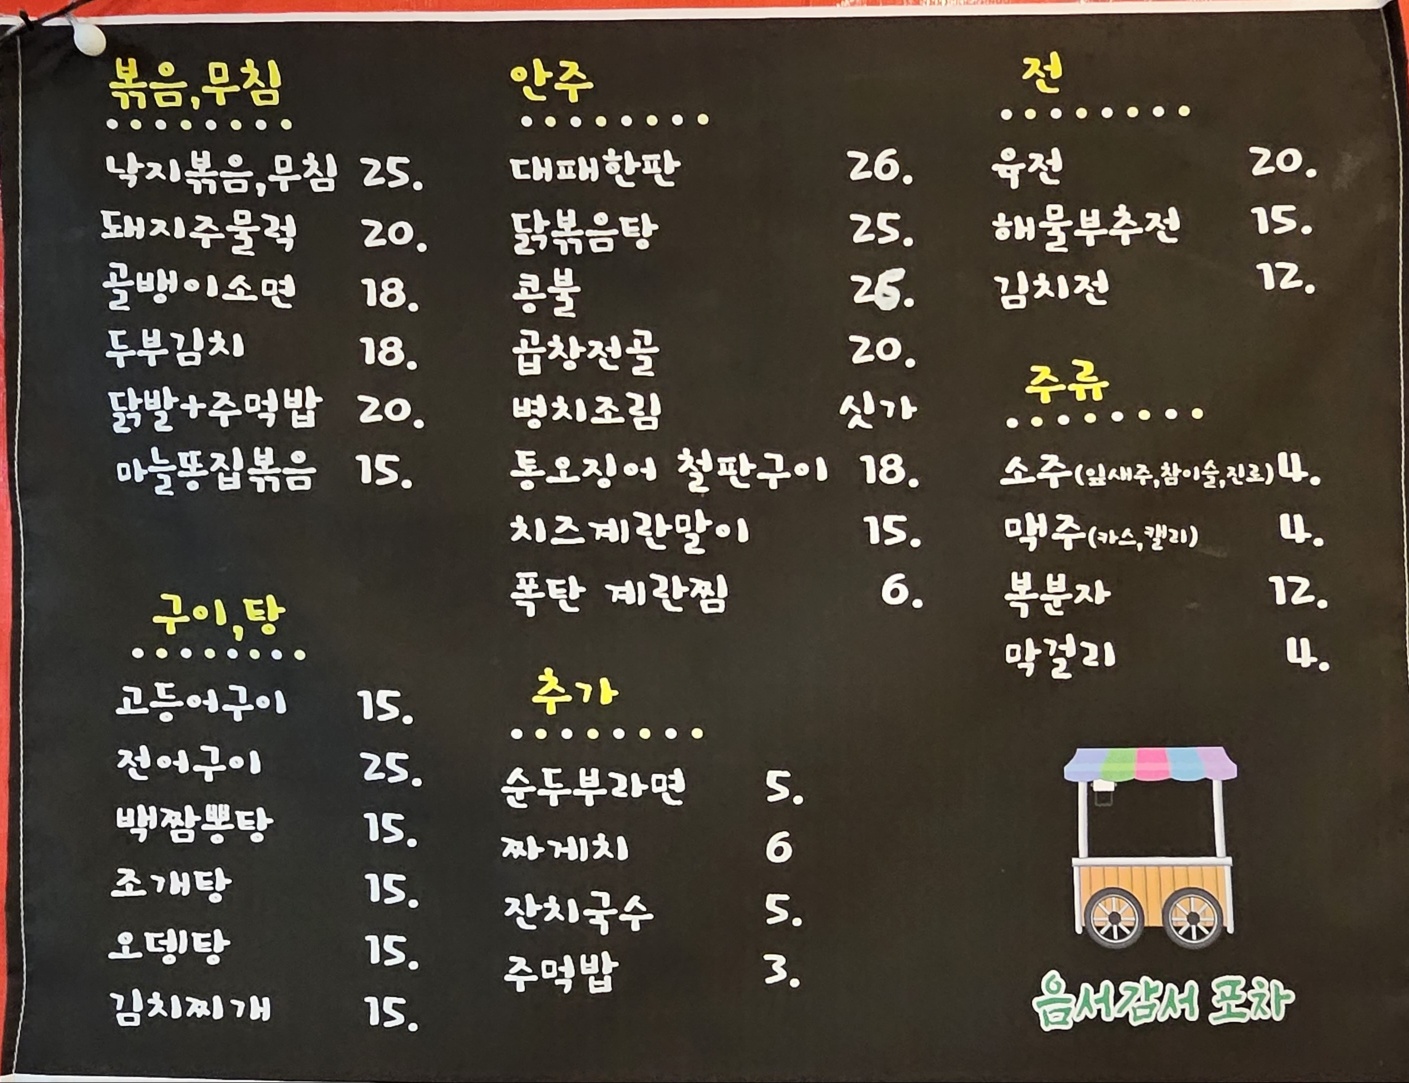 볶음,무침
낙지볶음,무침 25.
돼지주물럭 20.
골뱅이소면 18.
두부김치 18.
닭발+주먹밥 20.
마늘똥집볶음 15.
구이,탕
고등어구이 15.
전어구이 25.
백짬뽕탕 15.
조개탕 15.
오뎅탕 15.
김치찌개 15.
안주
대패한판 26.
닭볶음탕 25.
콩불 26.
곱창전골 20.
병치조림 싯가
통오징어 철판구이 18.
치즈계란말이 15.
폭탄 계란찜 6.
추가
순두부라면 5.
짜게치 6
잔치국수 5.
주먹밥 3.
전
육전 20.
해물부추전 15.
김치전 12.
주류
소주(잎새주,참이슬,진로) 4.
맥주(카스,캘리) 4.
복분자 12.
막걸리 4.
음서감서 포차